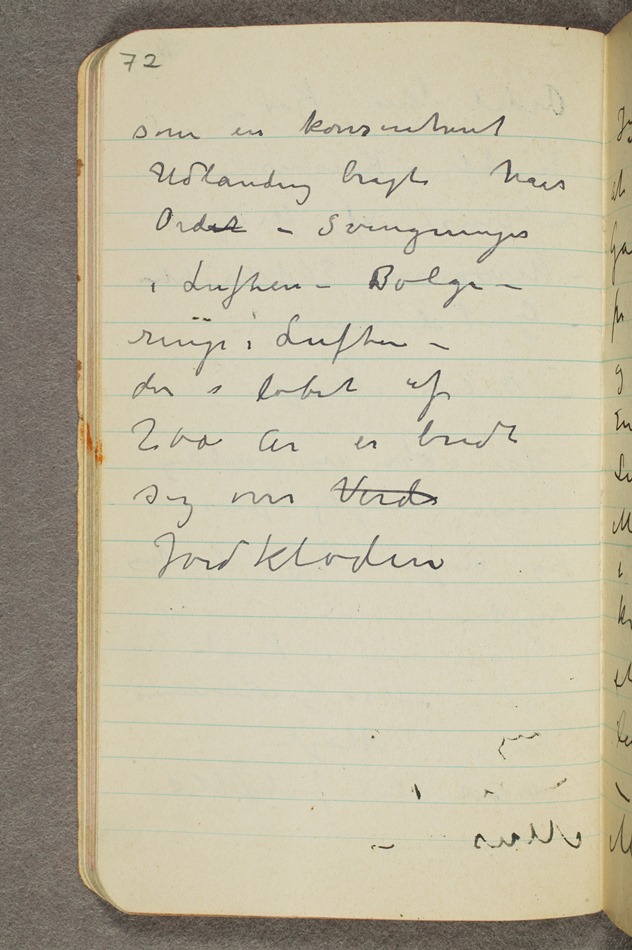 72
som en konsentrert
Udlanding bragte
Ordet – Svingninger
i Luften – Bølge –
ringe i Luften –
der i løbet af
2000 År er bredt
sig over Verds
Jordkloden